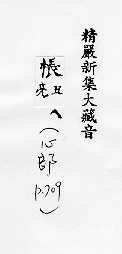 精嚴新集大藏音
悵丑亮へ(心部p.709)